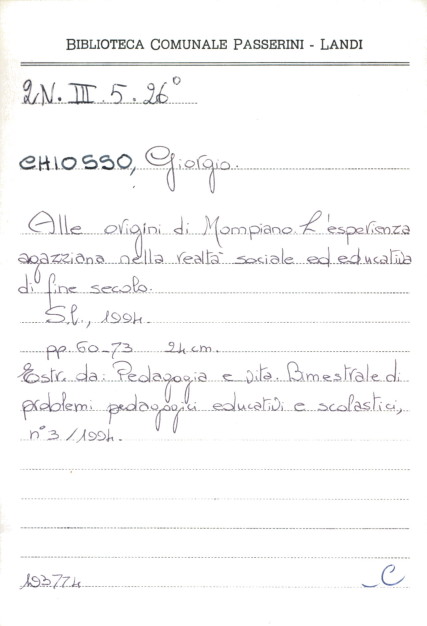 BIBLIOTECA COMUNALE PASSERINI - LANDI
2N. III. 5. 26°
CHIOSSO, Giorgio.
Alle origini di Mompiano. L'esperienza
agazziana nella realtà sociale ed educativa
di fine secolo.
S.l., 1994.
pp. 60-73 24 cm.
Estr. da: Pedagogia e vita. Bimestrale di
problemi pedagogici educativi e scolastici,
n° 3 / 1994.
193774
C